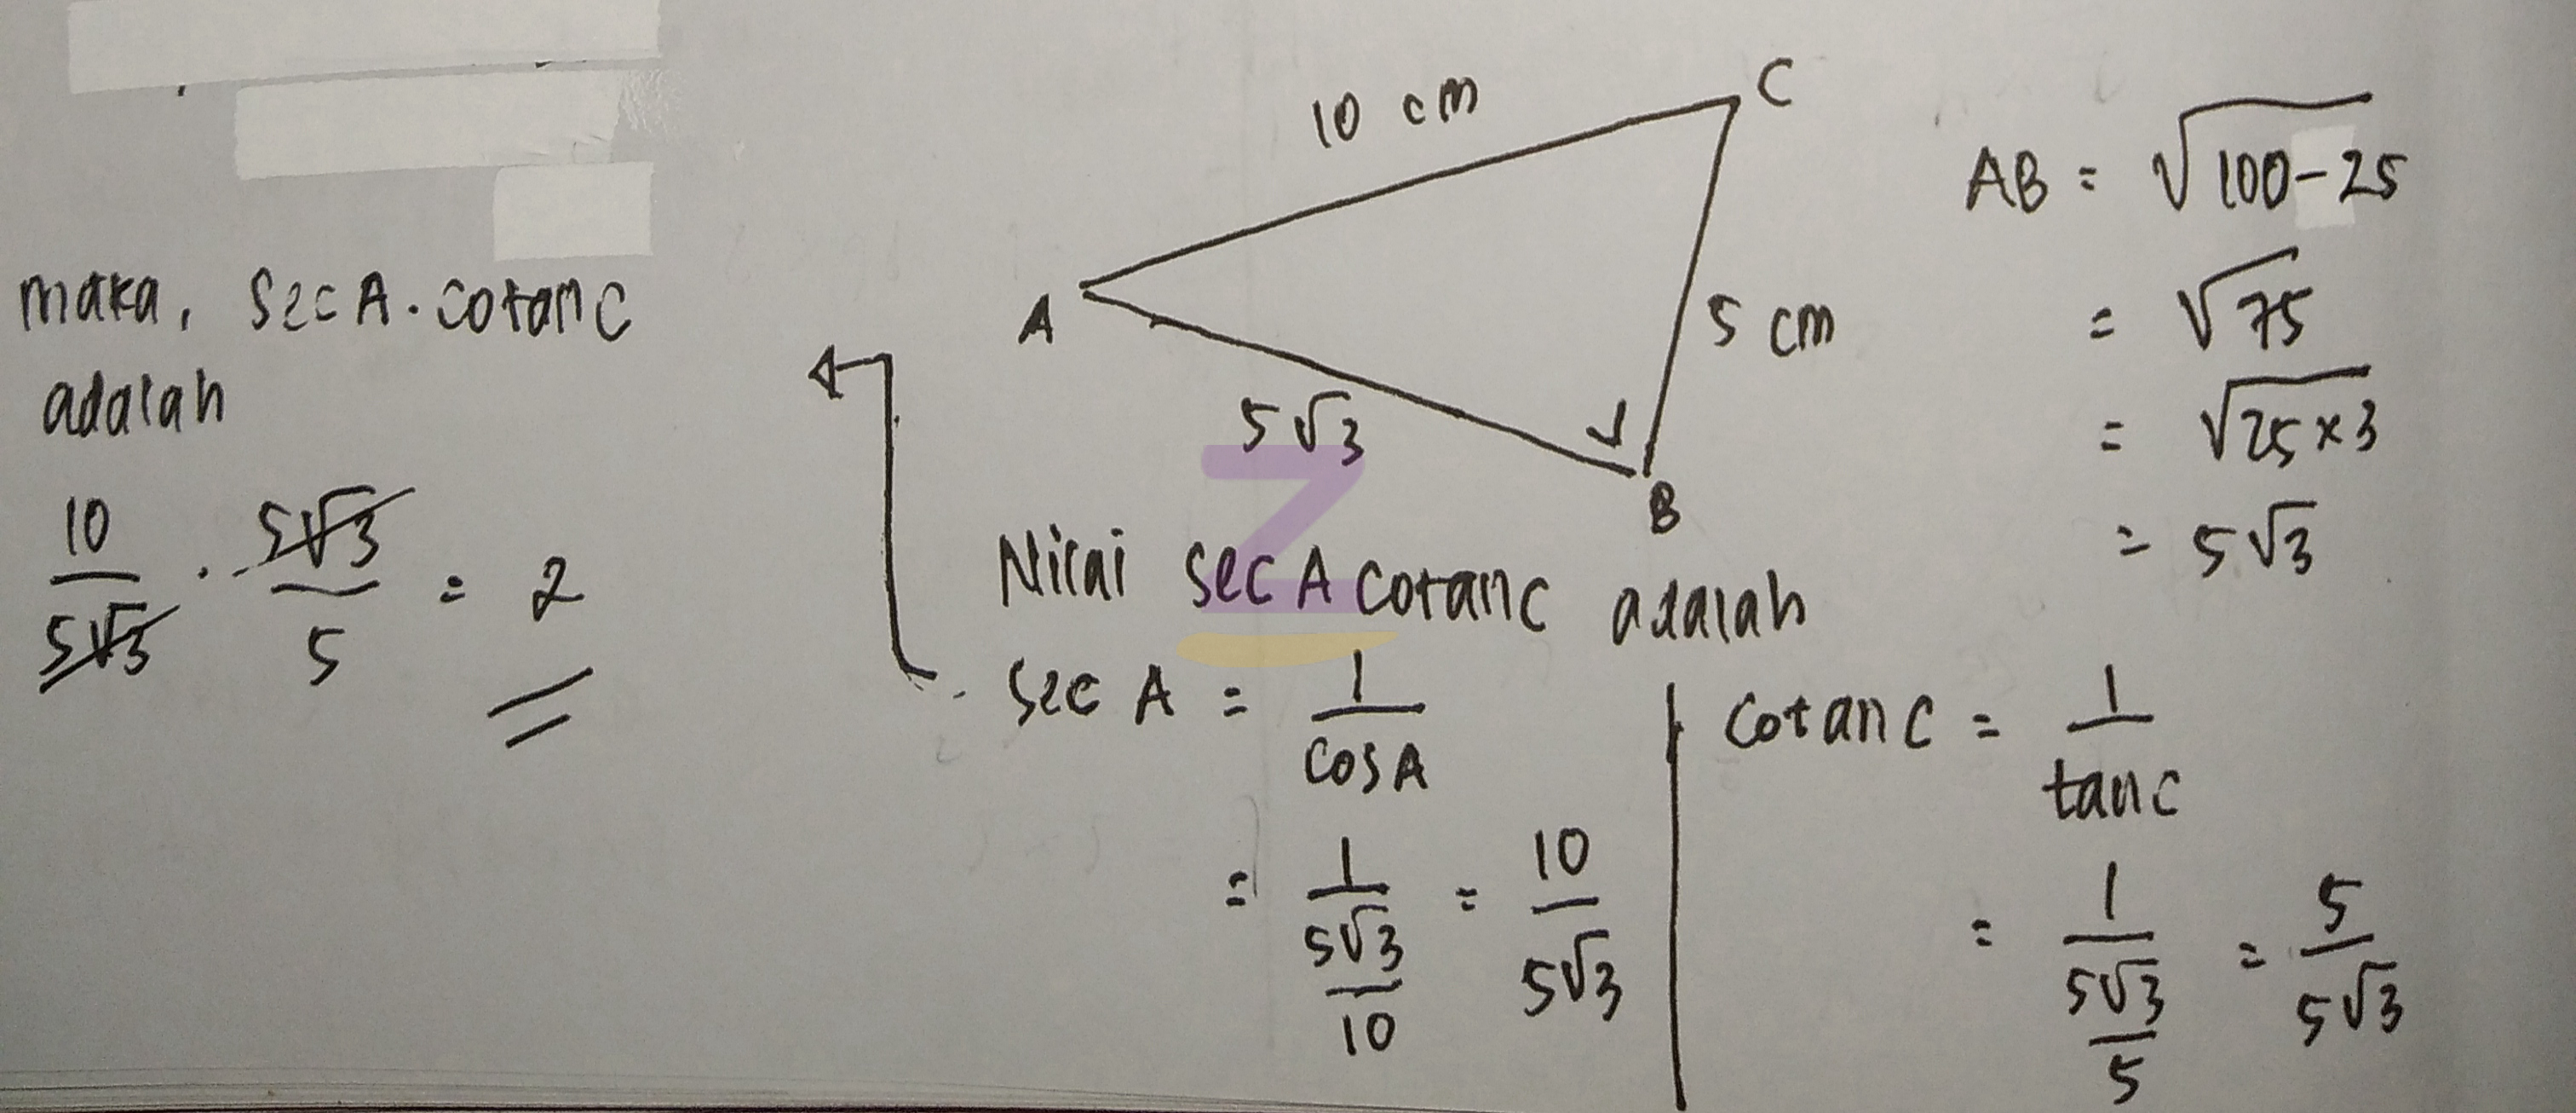 10 cm
C
A
5 cm
5√3
B
AB = √100-25
= √75
= √25×3
= 5√3
Nilai sec A cotan C adalah
sec A = 1/cos A
= 1/(5√3/10) = 10/5√3
cotan C = 1/tan C
= 1/(5√3/5) = 5/5√3
maka, sec A . cotan C
adalah
10/5√3 . 5√3/5 = 2
Z